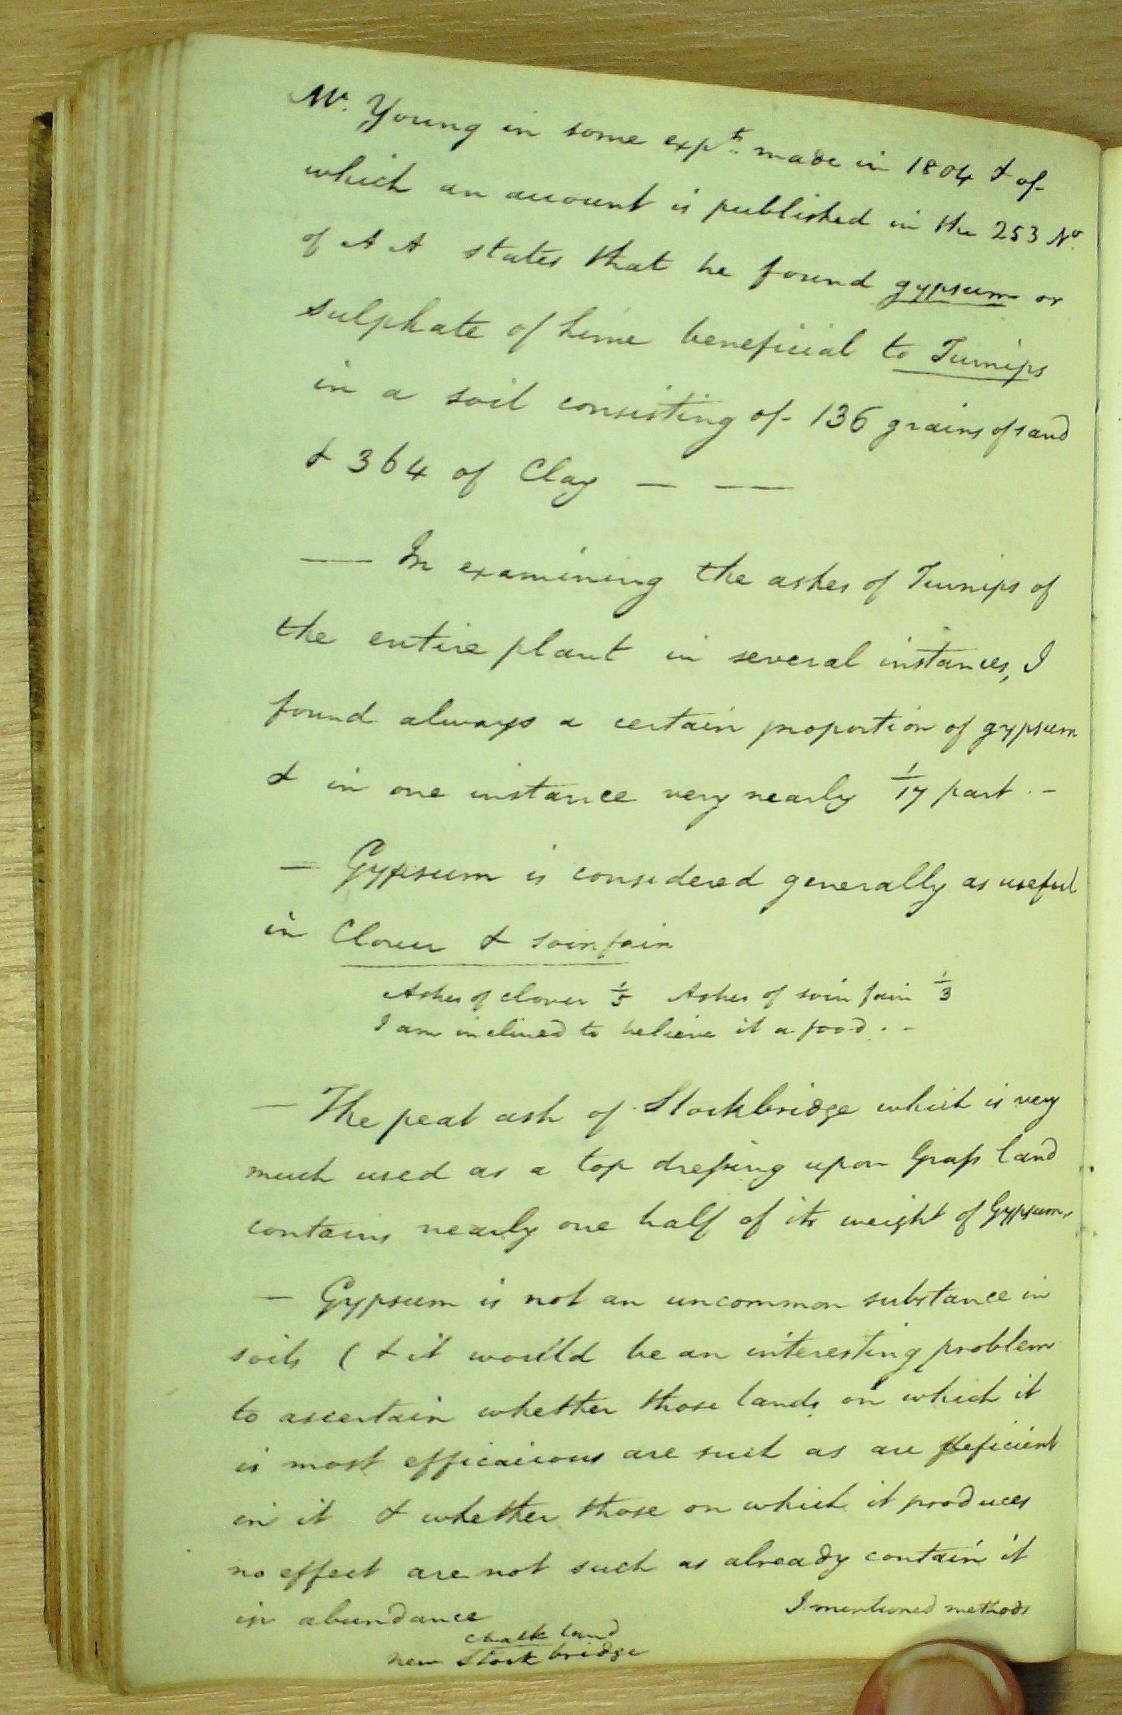 Mr. Young in some expts. made in 1804 & of
which an account is published in the 253 No.
of A A states that he found gypsum or
sulphate of Lime beneficial to Turnips
in a soil consisting of 136 grains of sand
& 364 of Clay — —
— In examining the ashes of Turnips of
the entire plant in several instances, I
found always a certain proportion of gypsum
& in one instance very nearly 1/17 part. -
— Gypsum is considered generally as useful
in Clover & sainfain
Ashes of clover 1/5 Ashes of sain fain 1/3
I am inclined to believe it a food. -
— The peat ash of Stockbridge which is very
much used as a top dressing upon Grass land
contains nearly one half of its weight of Gypsum.
— Gypsum is not an uncommon substance in
soils ( & it would be an interesting problem
to ascertain whether those lands on which it
is most efficacious are such as are deficient
in it & whether those on which it produces
no effect are not such as already contain it
in abundance I mentioned methods
chalk land
near Stockbridge